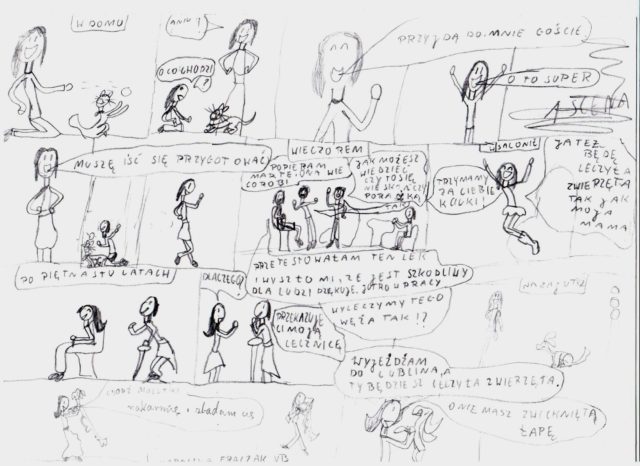 W DOMU
ANIU!
O CO CHODZI
?
PRZYJDĄ DO MNIE GOŚCIE
O TO SUPER
MUSZĘ IŚĆ SIĘ PRZYGOTOWAĆ
WIECZOREM
POPIERAM
MARZENA WIE
CO ROBI
JAK MOŻESZ
WIEDZIEĆ
CZY TO SIĘ
NIE SKOŃCZY
PORAŻKĄ
TAK
TRZYMAMY
ZA CIEBIE
KCIUKI!
W SALONIE
JA TEŻ
BĘDĘ
LECZYŁA
ZWIERZĘTA
TAK JAK
MOJA
MAMA
PO PIĘTNASTU LATACH
DLACZEGO?
PRZETESTOWAŁAM TEN LEK
I WYSZŁO MI, ŻE JEST SZKODLIWY
DLA LUDZI DZĘKUJE, JUTRO W PRACY
WYLECZYMY TEGO
WĘŻA TAK!?
PRZEKAZUJĘ
CI MOJĄ
LECZNICĘ
WYJEŻDŻAM
DO LUBLINA, A
TY BĘDZIESZ LECZYŁA ZWIERZĘTA.
NAZAJUTRZ
CHODŹ
nakarmię i zbadam cię
O NIE MASZ ZWICHNIĘTĄ
ŁAPĘ
VB